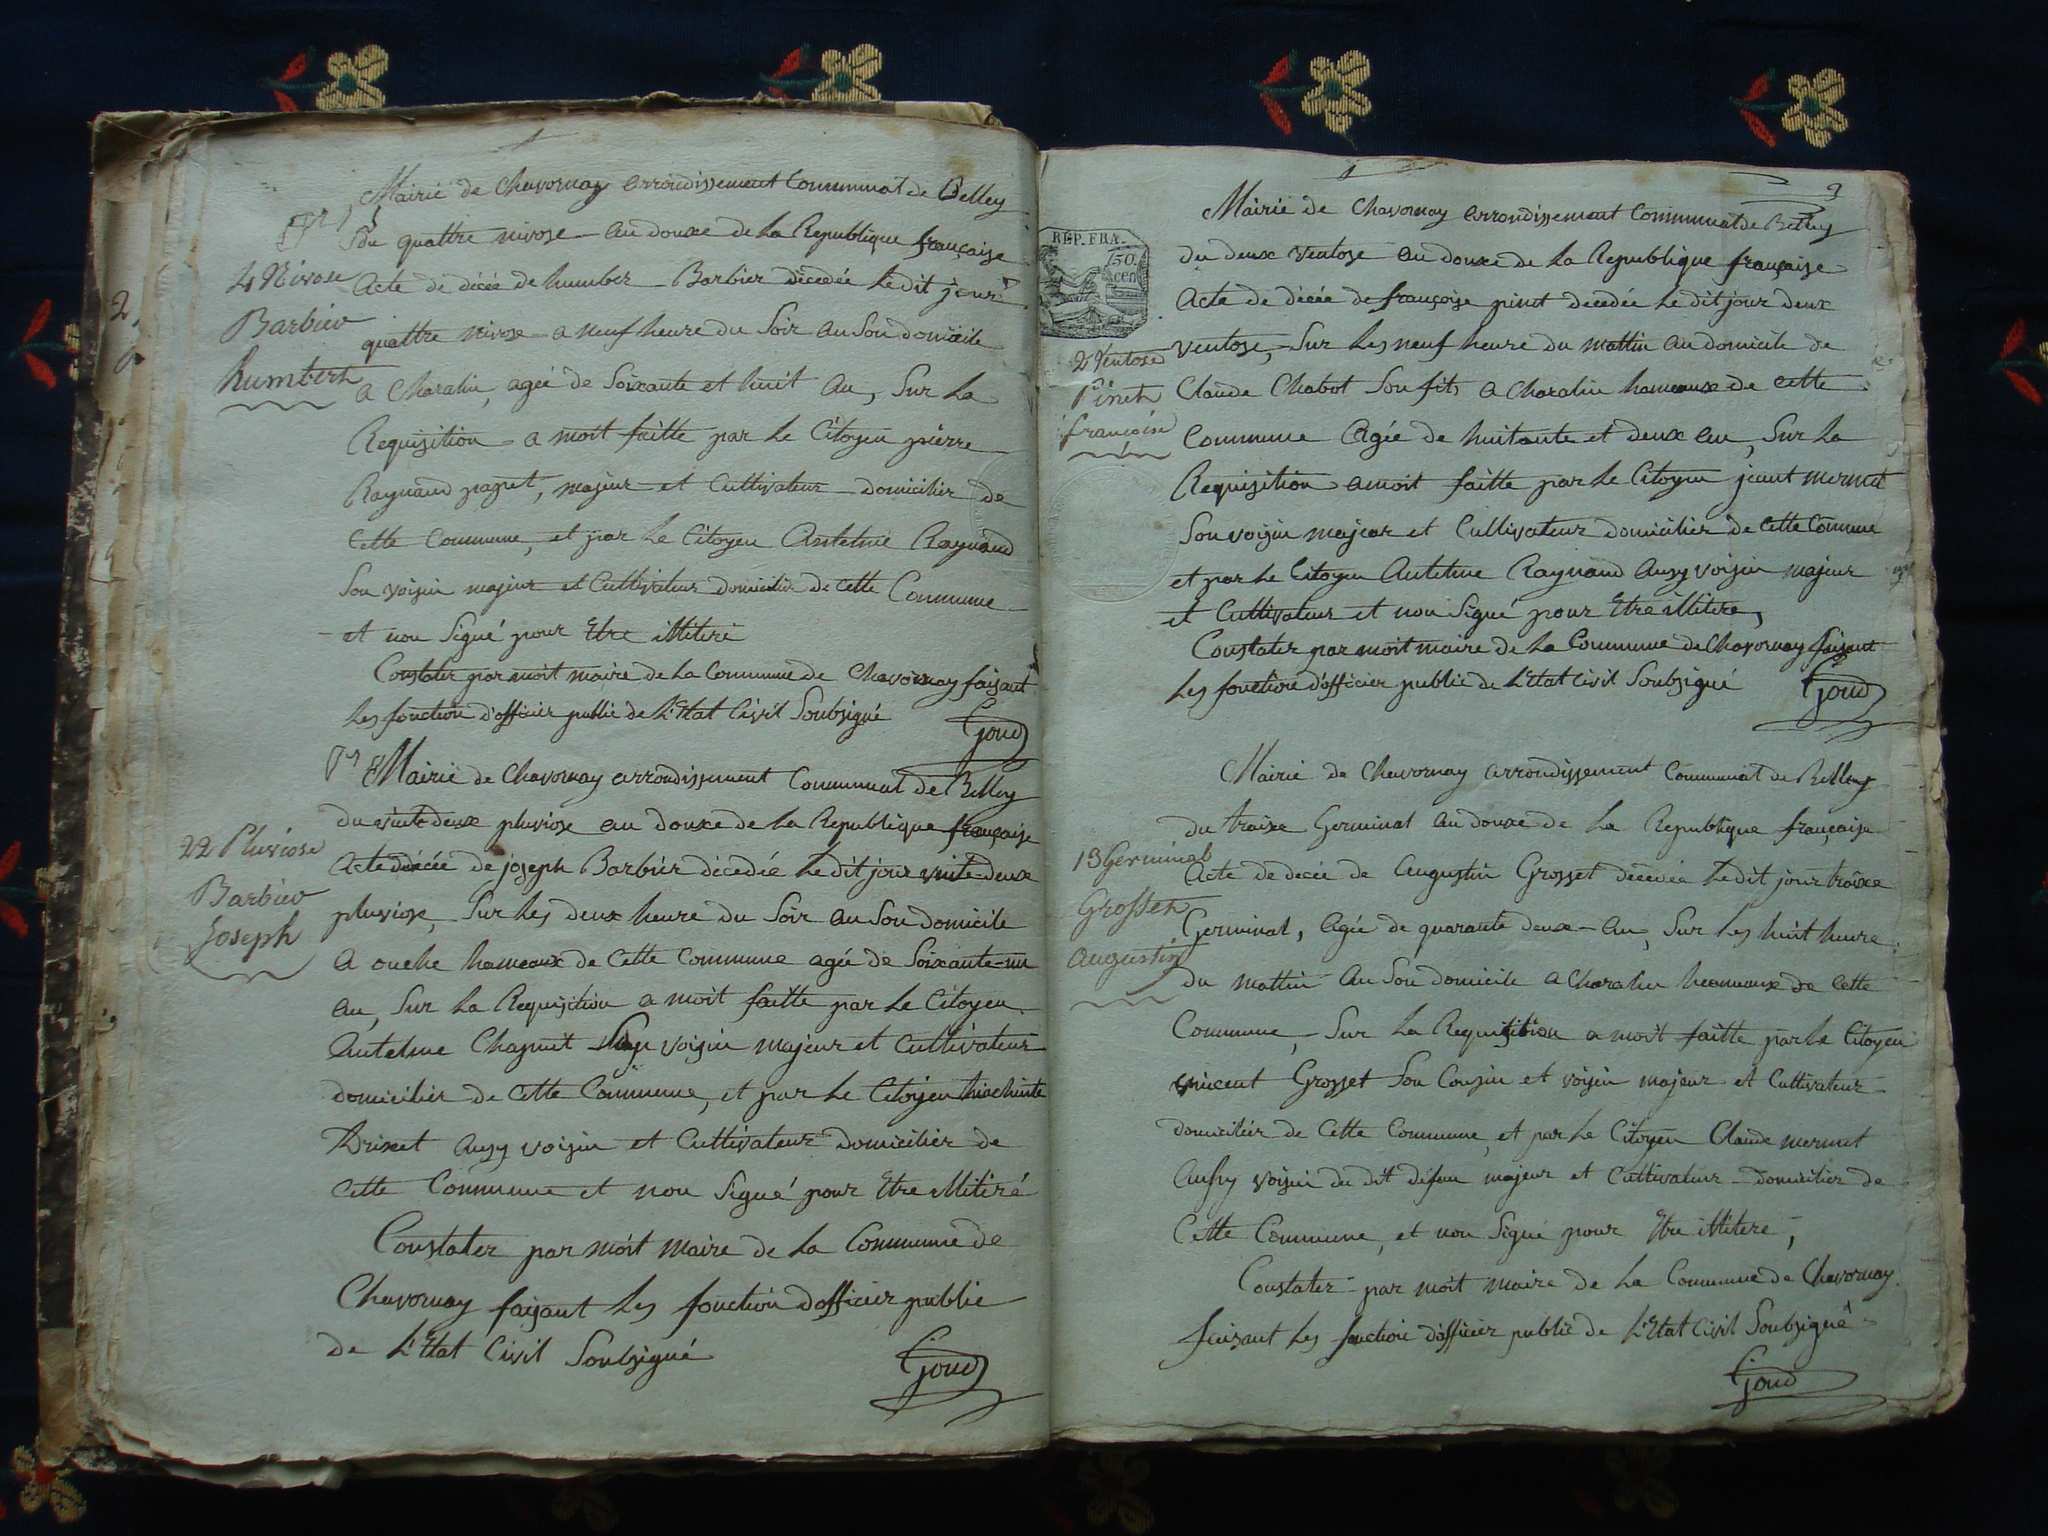 Mairie de Chavornay arrondissement Communal de Belley
du quattre nivose au douxe de La Republique française
Acte de décée de humber Barbier décédée Le dit jour
quattre nivose a neuf heure du Soir au Son domicile
a Charalin, agée de Soixante et huit an, Sur La
Requisition a moit faitte par Le Citoyen pierre
Raynaud papet, majeur et Cultivateur domicilier de
Cette Commune, et par Le Citoyen Antelme Raynaud
Son voisin majeur et Cultivateur domicilier de cette Commune
et non Signé pour Etre illiteré
Constater par moit maire de La Commune de Chavornay faisant
Les fonction d'officier public de L'Etat Civil Soubsigné
Goud
4 Nivose
Barbier
humbert
Mairie de Chavornay arrondissement Communal de Belley
du vinte deux pluviose au douxe de La Republique française
Acte décée de joseph Barbier décédée Le dit jour vinte deux
pluviose, Sur Les deux heure du Soir au Son domicile
a ouche hameaux de Cette Commune agée de Soixante un
an, Sur La Requisition a moit faitte par Le Citoyen
Antelme Chapuit voisin majeur et Cultivateur
domicilier de Cette Commune, et par Le Citoyen hiachinte
Drivet ausy voisin et Cultivateur domicilier de
Cette Commune et non Signé pour Etre illitéré
Constater par moit maire de La Commune de
Chavornay faisant Les fonction d'officier public
de L'Etat Civil Soubsigné
Goud
22 Pluviose
Barbier
Joseph
2
Mairie de Chavornay arrondissement Communal de Belley
du deux Ventose au douxe de La Republique française
Acte de décée de françoise pinet decedée Le dit jour deux
Ventose, Sur Les neuf heure du mattin au domicile de
Claude Chabot Son fits a Charalin hameaux de cette
Commune Agée de huitante et deux an, Sur La
Requisition a moit faitte par Le Citoyen jeant mermet
Son voisin majeur et Cultivateur domicilier de Cette Commune
et par Le Citoyen Antelme Raynaud ausy voisin majeur
et Cultivateur et non Signé pour Etre illitere,
Constater par moit maire de La Commune de Chavornay faisant
Les fonction d'officier public de L'Etat Civil Soubsigné
Goud
REP. FRA.
50
cen
2 Ventose
Pinet
françoise
Mairie de Chavornay arrondissement Communal de Belley
du traixe Germinal au douxe de La Republique française
Acte de decée de Augustin Grosset décédée Le dit jour traixe
Germinal, Agée de quarante deux an, Sur Les huit heure
du mattin au Son domicile a Charalin heameaux de cette
Commune, Sur La Requisition a moit faitte par Le Citoyen
vincent Grosset Son Cousin et voisin majeur et Cultivateur
domicilier de Cette Commune, et par Le Citoyen Claude mermet
Ausy voisin du dit defun majeur et Cultivateur domicilier de
Cette Commune, et non Signé pour Etre illitere,
Constater par moit maire de La Commune de Chavornay
faisant Les fonction d'officier public de L'Etat Civil Soubsigné
Goud
13 Germinal
Grosset
Augustin